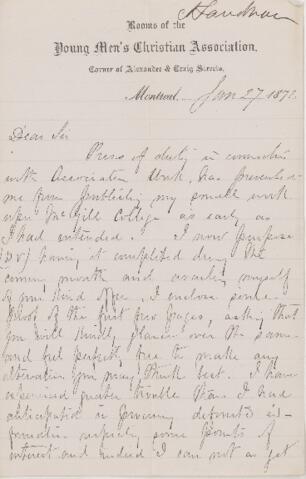 Rooms of the
Young Men's Christian Association,
Corner of Alexander & Craig Streets.
Montreal, Jan 27 1872.
Dear Sir
Press of duty in connection
with Association Work, has prevented
me from publishing my small work
upon McGill College as early as
I had intended. I now purpose
(D.V.) having it completed during the
coming month and availing myself
of your kind offer, I enclose some
proof of the first few pages, asking that
you will kindly glance over the same
and feel perfectly free to make any
alteration you may think best. I have
experienced greater trouble than I had
anticipated in procuring definite in-
formation respecting some points of
interest and indeed I can not as yet